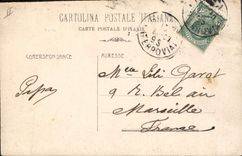 CARTOLINA POSTALE ITALIANA
CARTE POSTALE D'ITALIE
CORRESPONDANCE
ADRESSE
Papa
Mlle Lili
9 R. Bel air
Marseille
France